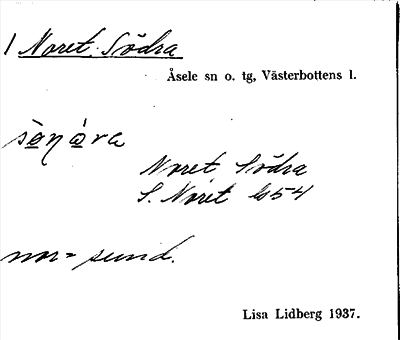 1 Noret. Södra
Åsele sn o. tg, Västerbottens l.
Noret Södra
S. Noret bs 54
nor = sund.
Lisa Lidberg 1937.